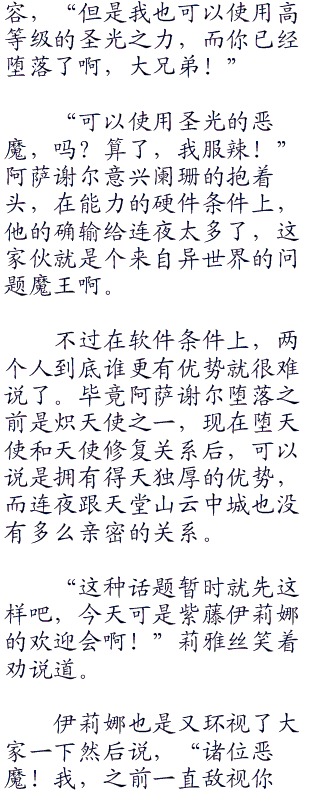 容，“但是我也可以使用高
等级的圣光之力，而你已经
堕落了啊，大兄弟！”
“可以使用圣光的恶
魔，吗？算了，我服辣！”
阿萨谢尔意兴阑珊的抱着
头，在能力的硬件条件上，
他的确输给连夜太多了，这
家伙就是个来自异世界的问
题魔王啊。
不过在软件条件上，两
个人到底谁更有优势就很难
说了。毕竟阿萨谢尔堕落之
前是炽天使之一，现在堕天
使和天使修复关系后，可以
说是拥有得天独厚的优势，
而连夜跟天堂山云中城也没
有多么亲密的关系。
“这种话题暂时就先这
样吧，今天可是紫藤伊莉娜
的欢迎会啊！”莉雅丝笑着
劝说道。
伊莉娜也是又环视了大
家一下然后说，“诸位恶
魔！我，之前一直敌视你